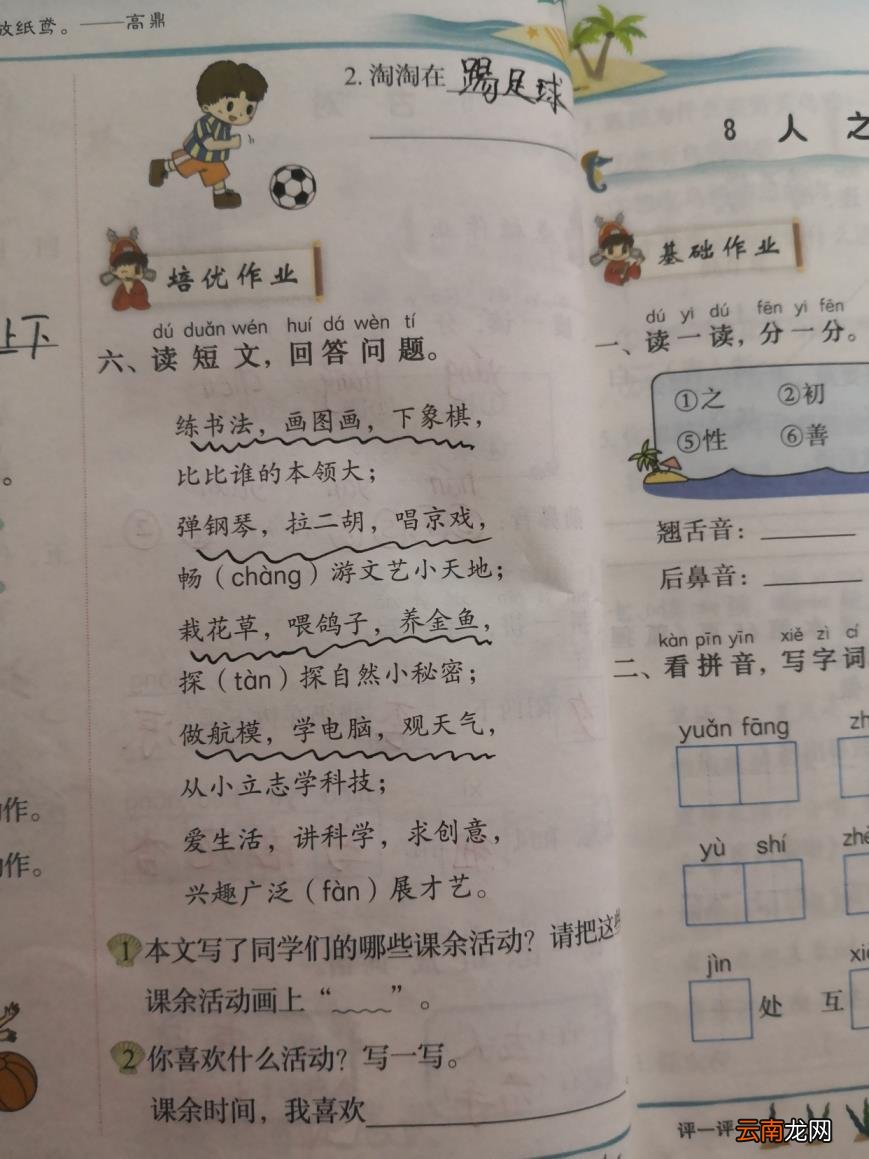 放纸鸢。——高鼎
2. 淘淘在 踢足球
培优作业
dú duǎn wén huí dá wèn tí
六、读短文，回答问题。
练书法，画图画，下象棋，
比比谁的本领大；
弹钢琴，拉二胡，唱京戏，
畅（chàng）游文艺小天地；
栽花草，喂鸽子，养金鱼，
探（tàn）探自然小秘密；
做航模，学电脑，观天气，
从小立志学科技；
爱生活，讲科学，求创意，
兴趣广泛（fàn）展才艺。
1 本文写了同学们的哪些课余活动？请把这些
课余活动画上“﹏﹏”。
2 你喜欢什么活动？写一写。
课余时间，我喜欢
上下
。
作。
动作。
8 人 之
基础作业
dú yi dú fēn yi fēn
一、读一读，分一分。
①之 ②初
⑤性 ⑥善
翘舌音：
后鼻音：
kàn pīn yīn xiě zì cí
二、看拼音，写字词
yuǎn fāng zh
yù shí zhè
jìn xi
处 互
评一评
云南龙网